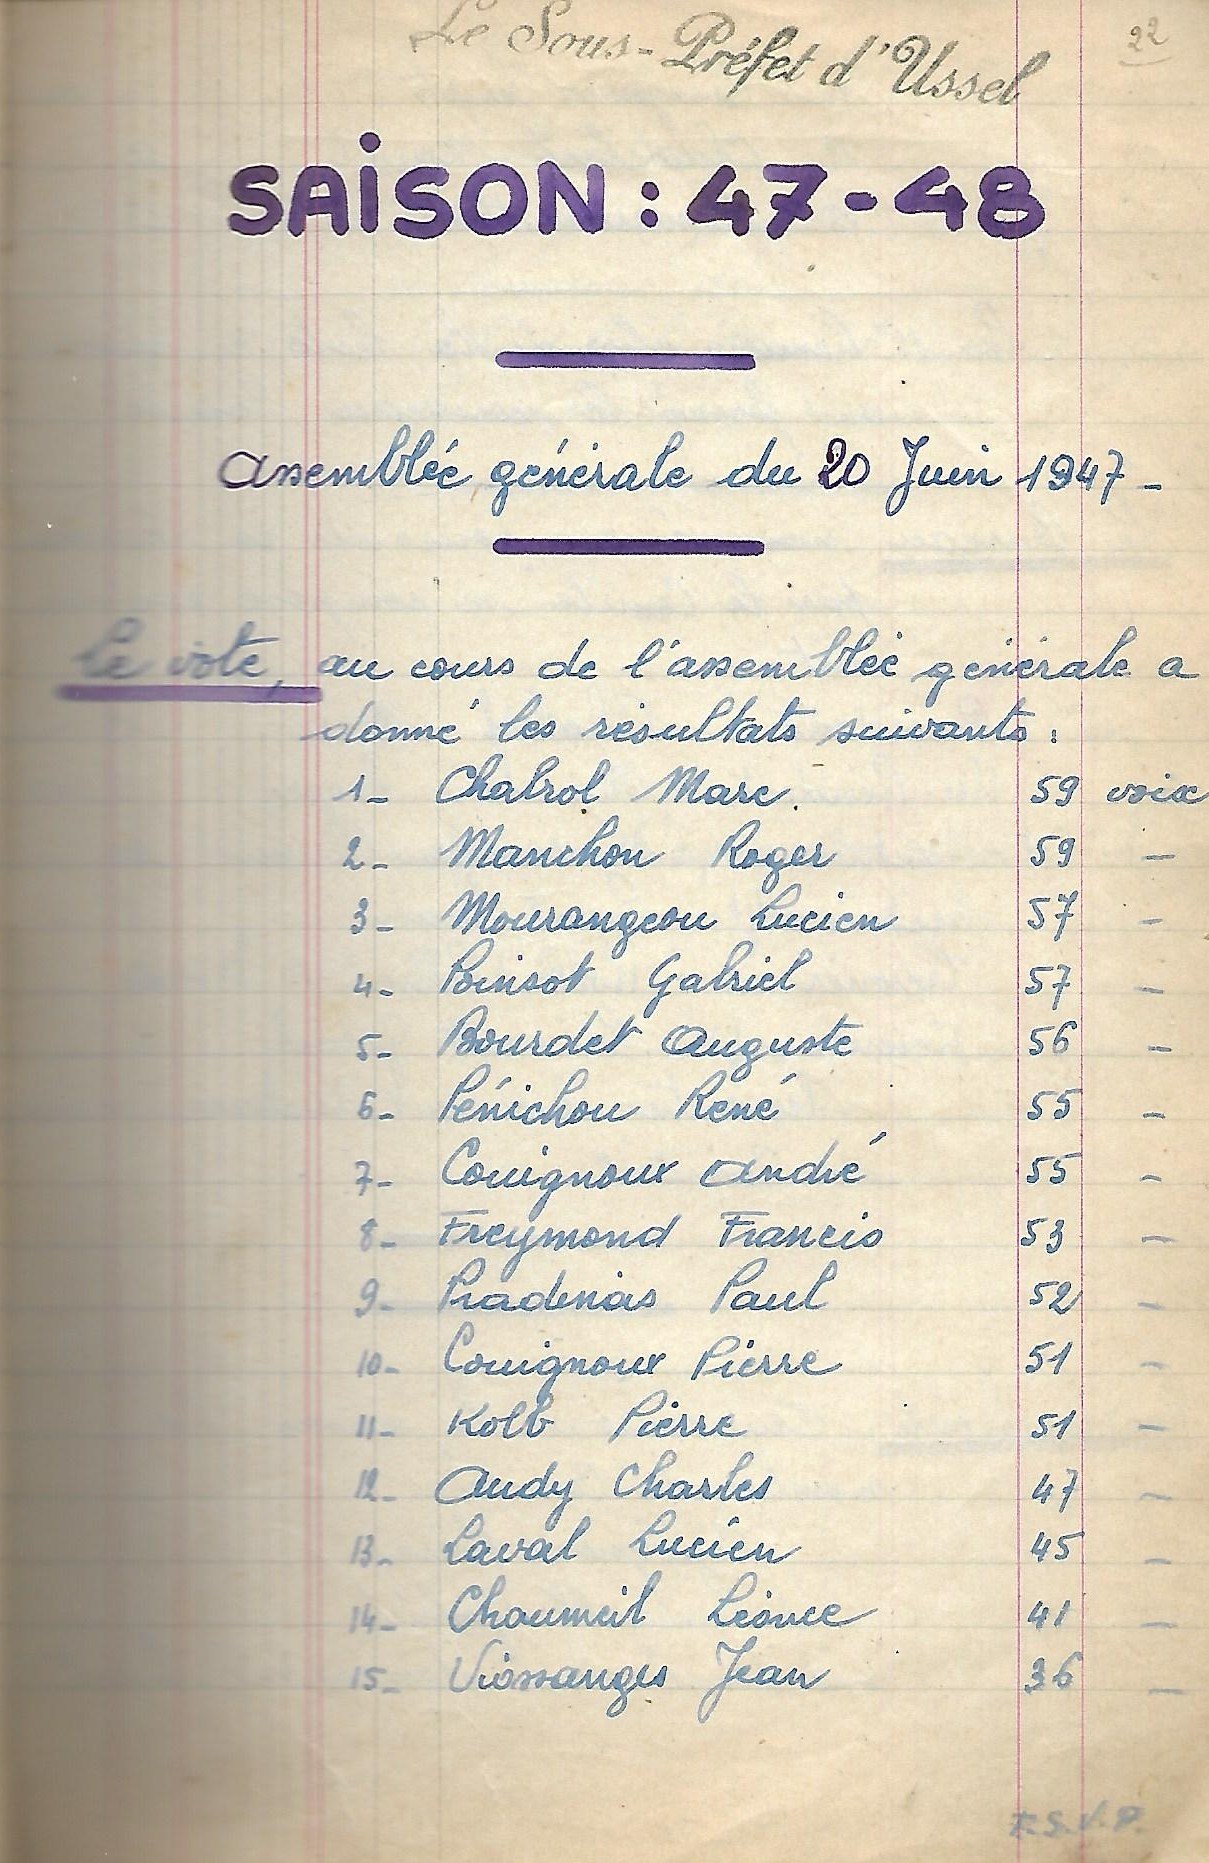 Le Sous-Préfet d'Ussel
22
SAISON : 47-48
Assemblée générale du 20 Juin 1947 -
Le vote, au cours de l'assemblée générale a
donné les résultats suivants :
1- Chabrol Marc. 59 voix
2- Manchon Roger 59 -
3- Mourangeou Lucien 57 -
4- Poinsot Gabriel 57 -
5- Bourdet Auguste 56 -
6- Pénichou René 55 -
7- Couignoux André 55 -
8- Freymond Francis 53 -
9- Pradinas Paul 52 -
10- Couignoux Pierre 51 -
11- Kolb Pierre 51 -
12- Audy Charles 47 -
13- Laval Lucien 45 -
14- Chaumeil Léonce 41 -
15- Viossanges Jean 36 -
T.S.V.P.